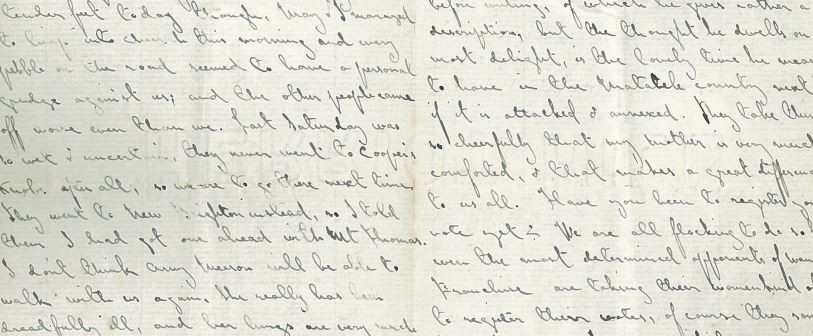 tender feet today though, May & I managed
to limp into church this morning and every
pebble on the road seemed to have a personal
grudge against us; and the other people came
off worse even than we. Last Saturday was
so wet & uncertain, they never went to Cooper's
Knobs after all, so we are to go there next time
They went to New Brighton instead, so I told
them I had got one ahead with Mt Thomas.
I don't think Amy will be able to
walk with us again. She really has been
dreadfully ill, and her lungs are very
before writing, of which he gives rather a
description, but the thought he dwells on
most delight, is the lovely time he means
to have in the country next
if it is attacked & annexed. They take things
so cheerfully that my mother is very much
comforted, & that makes a great difference
to us all. Have you been to register your
vote yet? We are all flocking to do so
even the most determined opponents of
Franchise are taking their womenkind
to register their votes, of course they